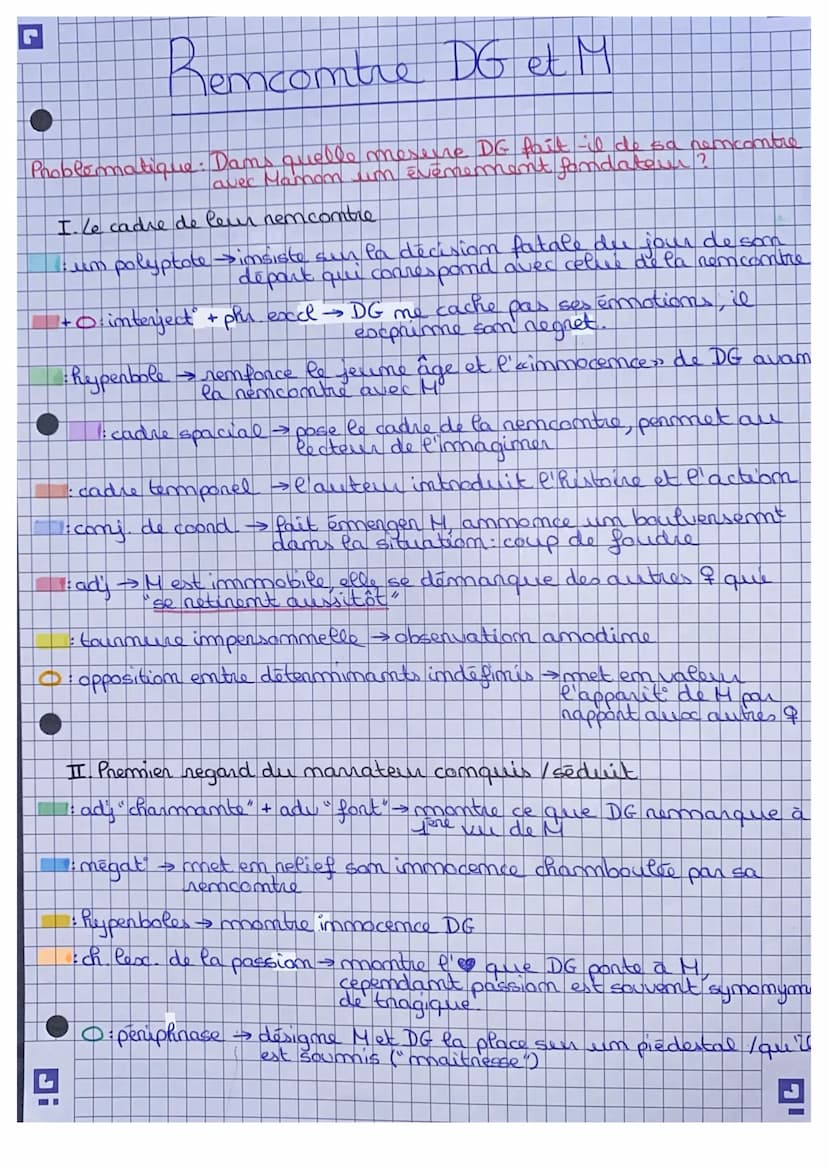 Rencontre DG et M
Problématique : Dans quelle mesure DG fait-il de sa rencontre
avec Manon un évènement fondateur ?
I. Le cadre de leur rencontre
: un polyptote → insiste sur la décision fatale du jour de son
départ qui correspond avec celui de la rencontre
+ O : interject° + phr excl → DG ne cache pas ses émotions, il
exprime son regret.
: hyperbole → renforce le jeune âge et l'« innocence » de DG avan
la rencontre avec M
: cadre spacial → pose le cadre de la rencontre, permet au
lecteur de l'imaginer
: cadre temporel → l'auteur introduit l'histoire et l'action
: conj. de coord. → fait émerger M, annonce un boulversemnt
dans la situation : coup de foudre
: adj → M est immobile, elle se démarque des autres ♀ qui
"se retirent aussitôt"
: tournure impersonnelle → observation anodine
O : opposition entre déterminants indéfinis → met en valeur
l'apparit° de M par
rapport aux autres ♀
II. Premier regard du narrateur conquis / séduit
: adj "charmante" + adv "fort" → montre ce que DG remarque à
1ère vu de M
: négat° → met en relief son innocence chamboulée par sa
rencontre
: hyperboles → montre innocence DG
: ch. lex. de la passion → montre l'♥ que DG porte à M,
cependant passion est souvent synonym
de tragique.
O : périphrase → désigne M et DG la place sur un piédestal / qu'il
est soumis ("maîtresse")